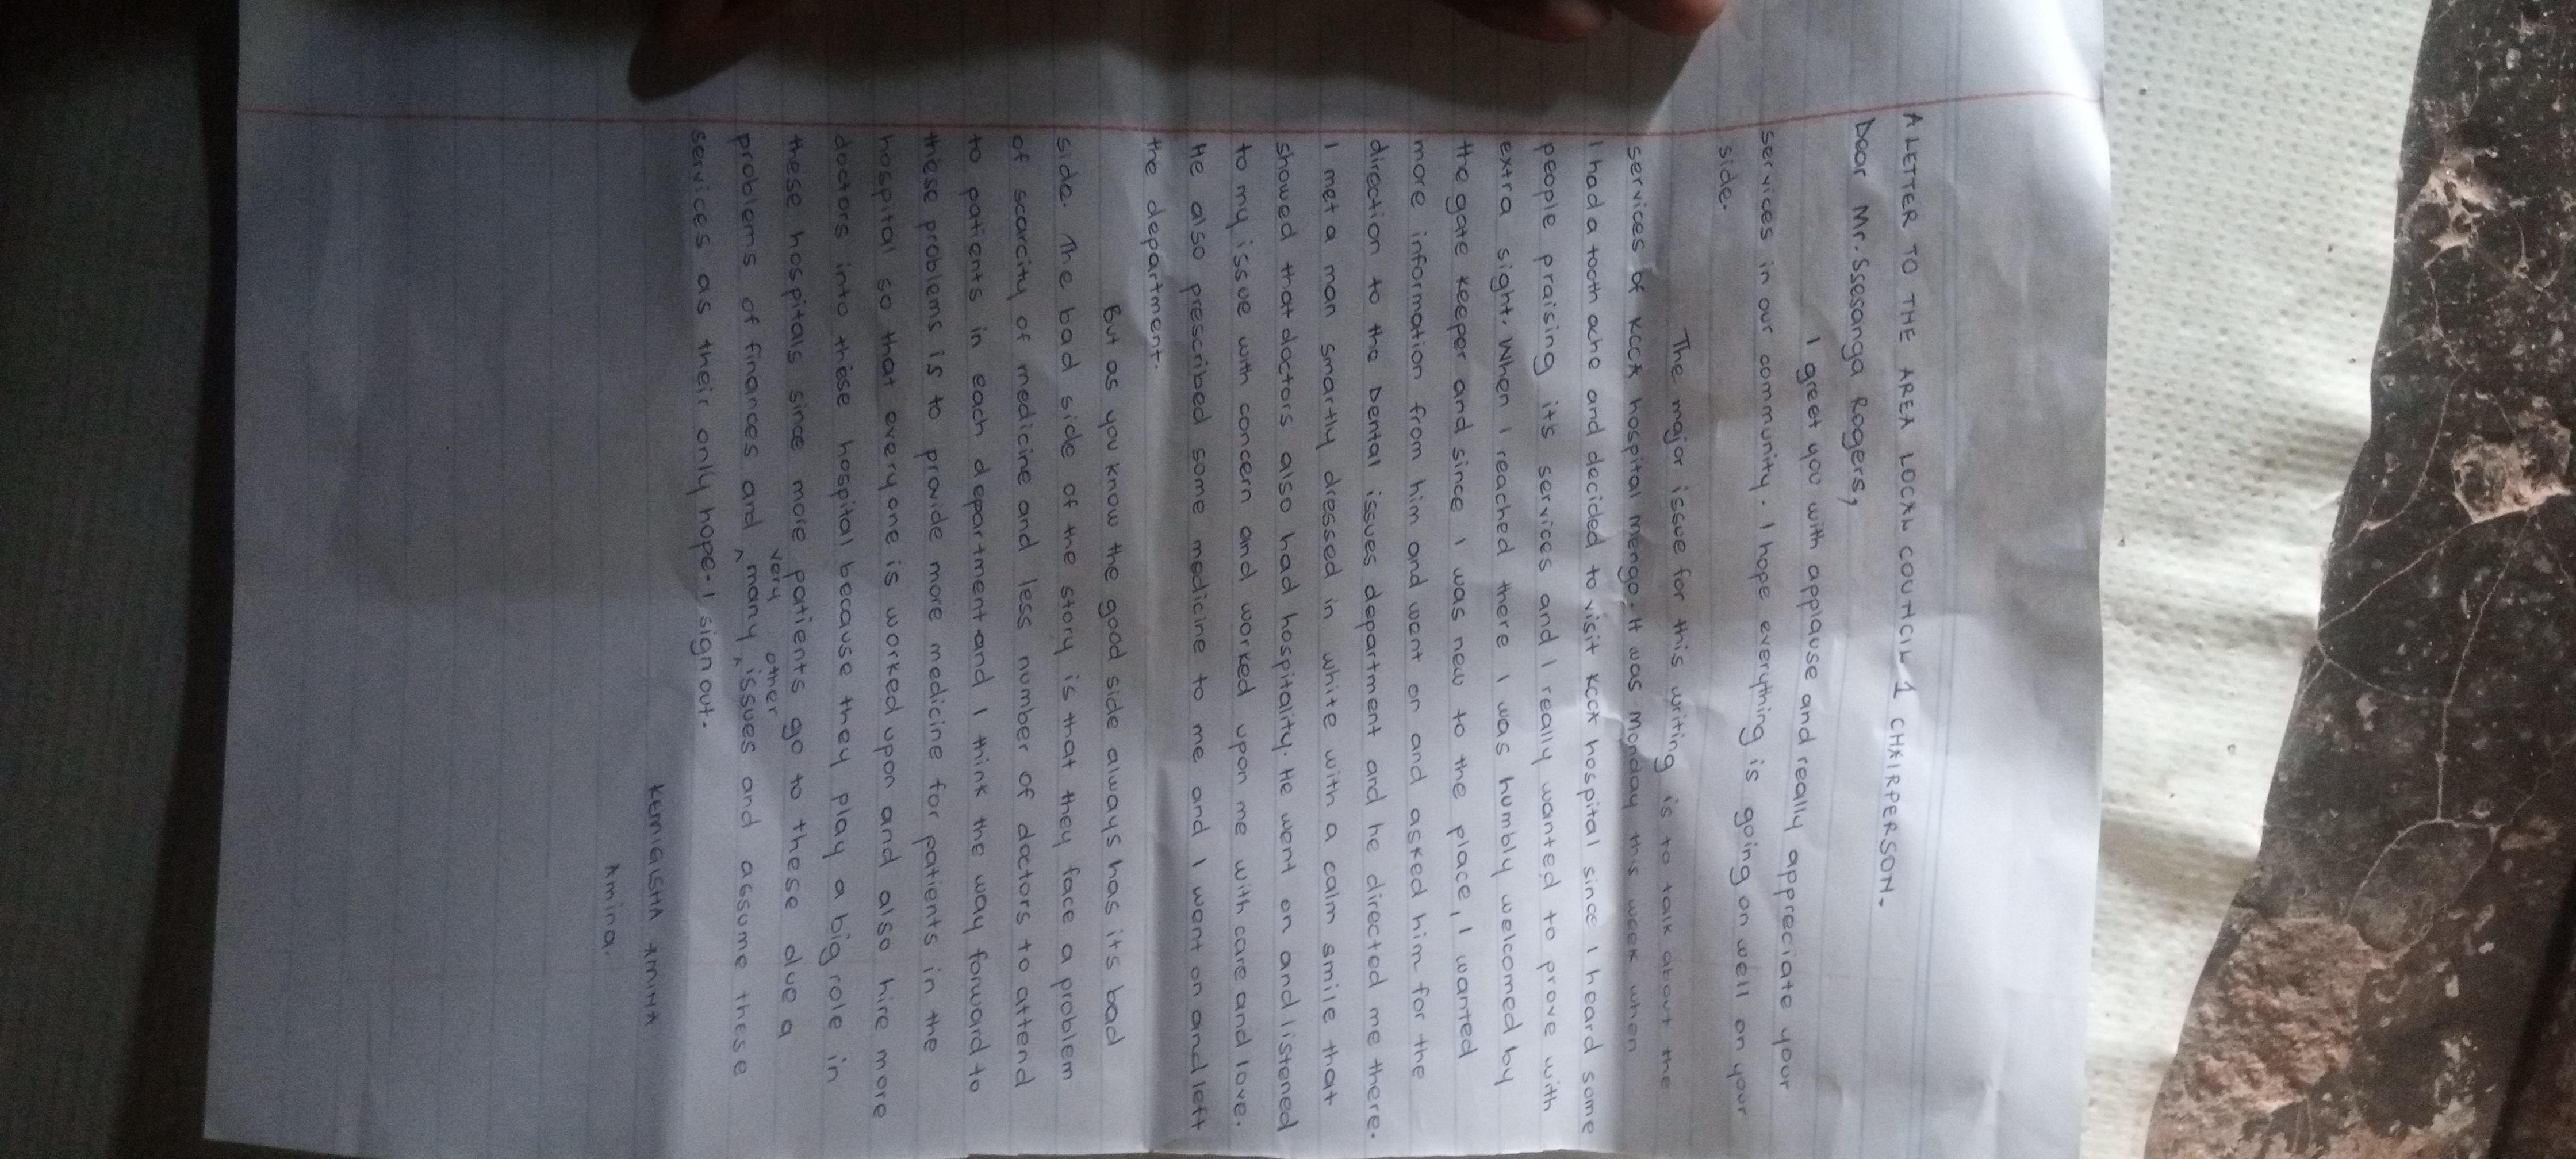 A LETTER TO THE AREA LOCAL COUNCIL 1 CHAIRPERSON.
Dear Mr. Ssesanga Rogers,
I greet you with applause and really appreciate your
services in our community. I hope everything is going on well on your
side.
The major issue for this writing is to talk about the
services of KCCA hospital mengo. It was monday this week when
I had a tooth ache and decided to visit KCCA hospital since I heard some
people praising it's services and I really wanted to prove with
extra sight. When I reached there I was humbly welcomed by
the gate keeper and since I was new to the place, I wanted
more information from him and went on and asked him for the
direction to the Dental issues department and he directed me there.
I met a man smartly dressed in white with a calm smile that
showed that doctors also had hospitality. He went on and listened
to my issue with concern and worked upon me with care and love.
He also prescribed some medicine to me and I went on and left
the department.
But as you know the good side always has it's bad
side. The bad side of the story is that they face a problem
of scarcity of medicine and less number of doctors to attend
to patients in each department and I think the way forward to
these problems is to provide more medicine for patients in the
hospital so that everyone is worked upon and also hire more
doctors into these hospital because they play a big role in
these hospitals since more patients go to these due a
problems of finances and very many other issues and assume these
services as their only hope. I sign out.
KEMIGISHA AMINA
Amina.